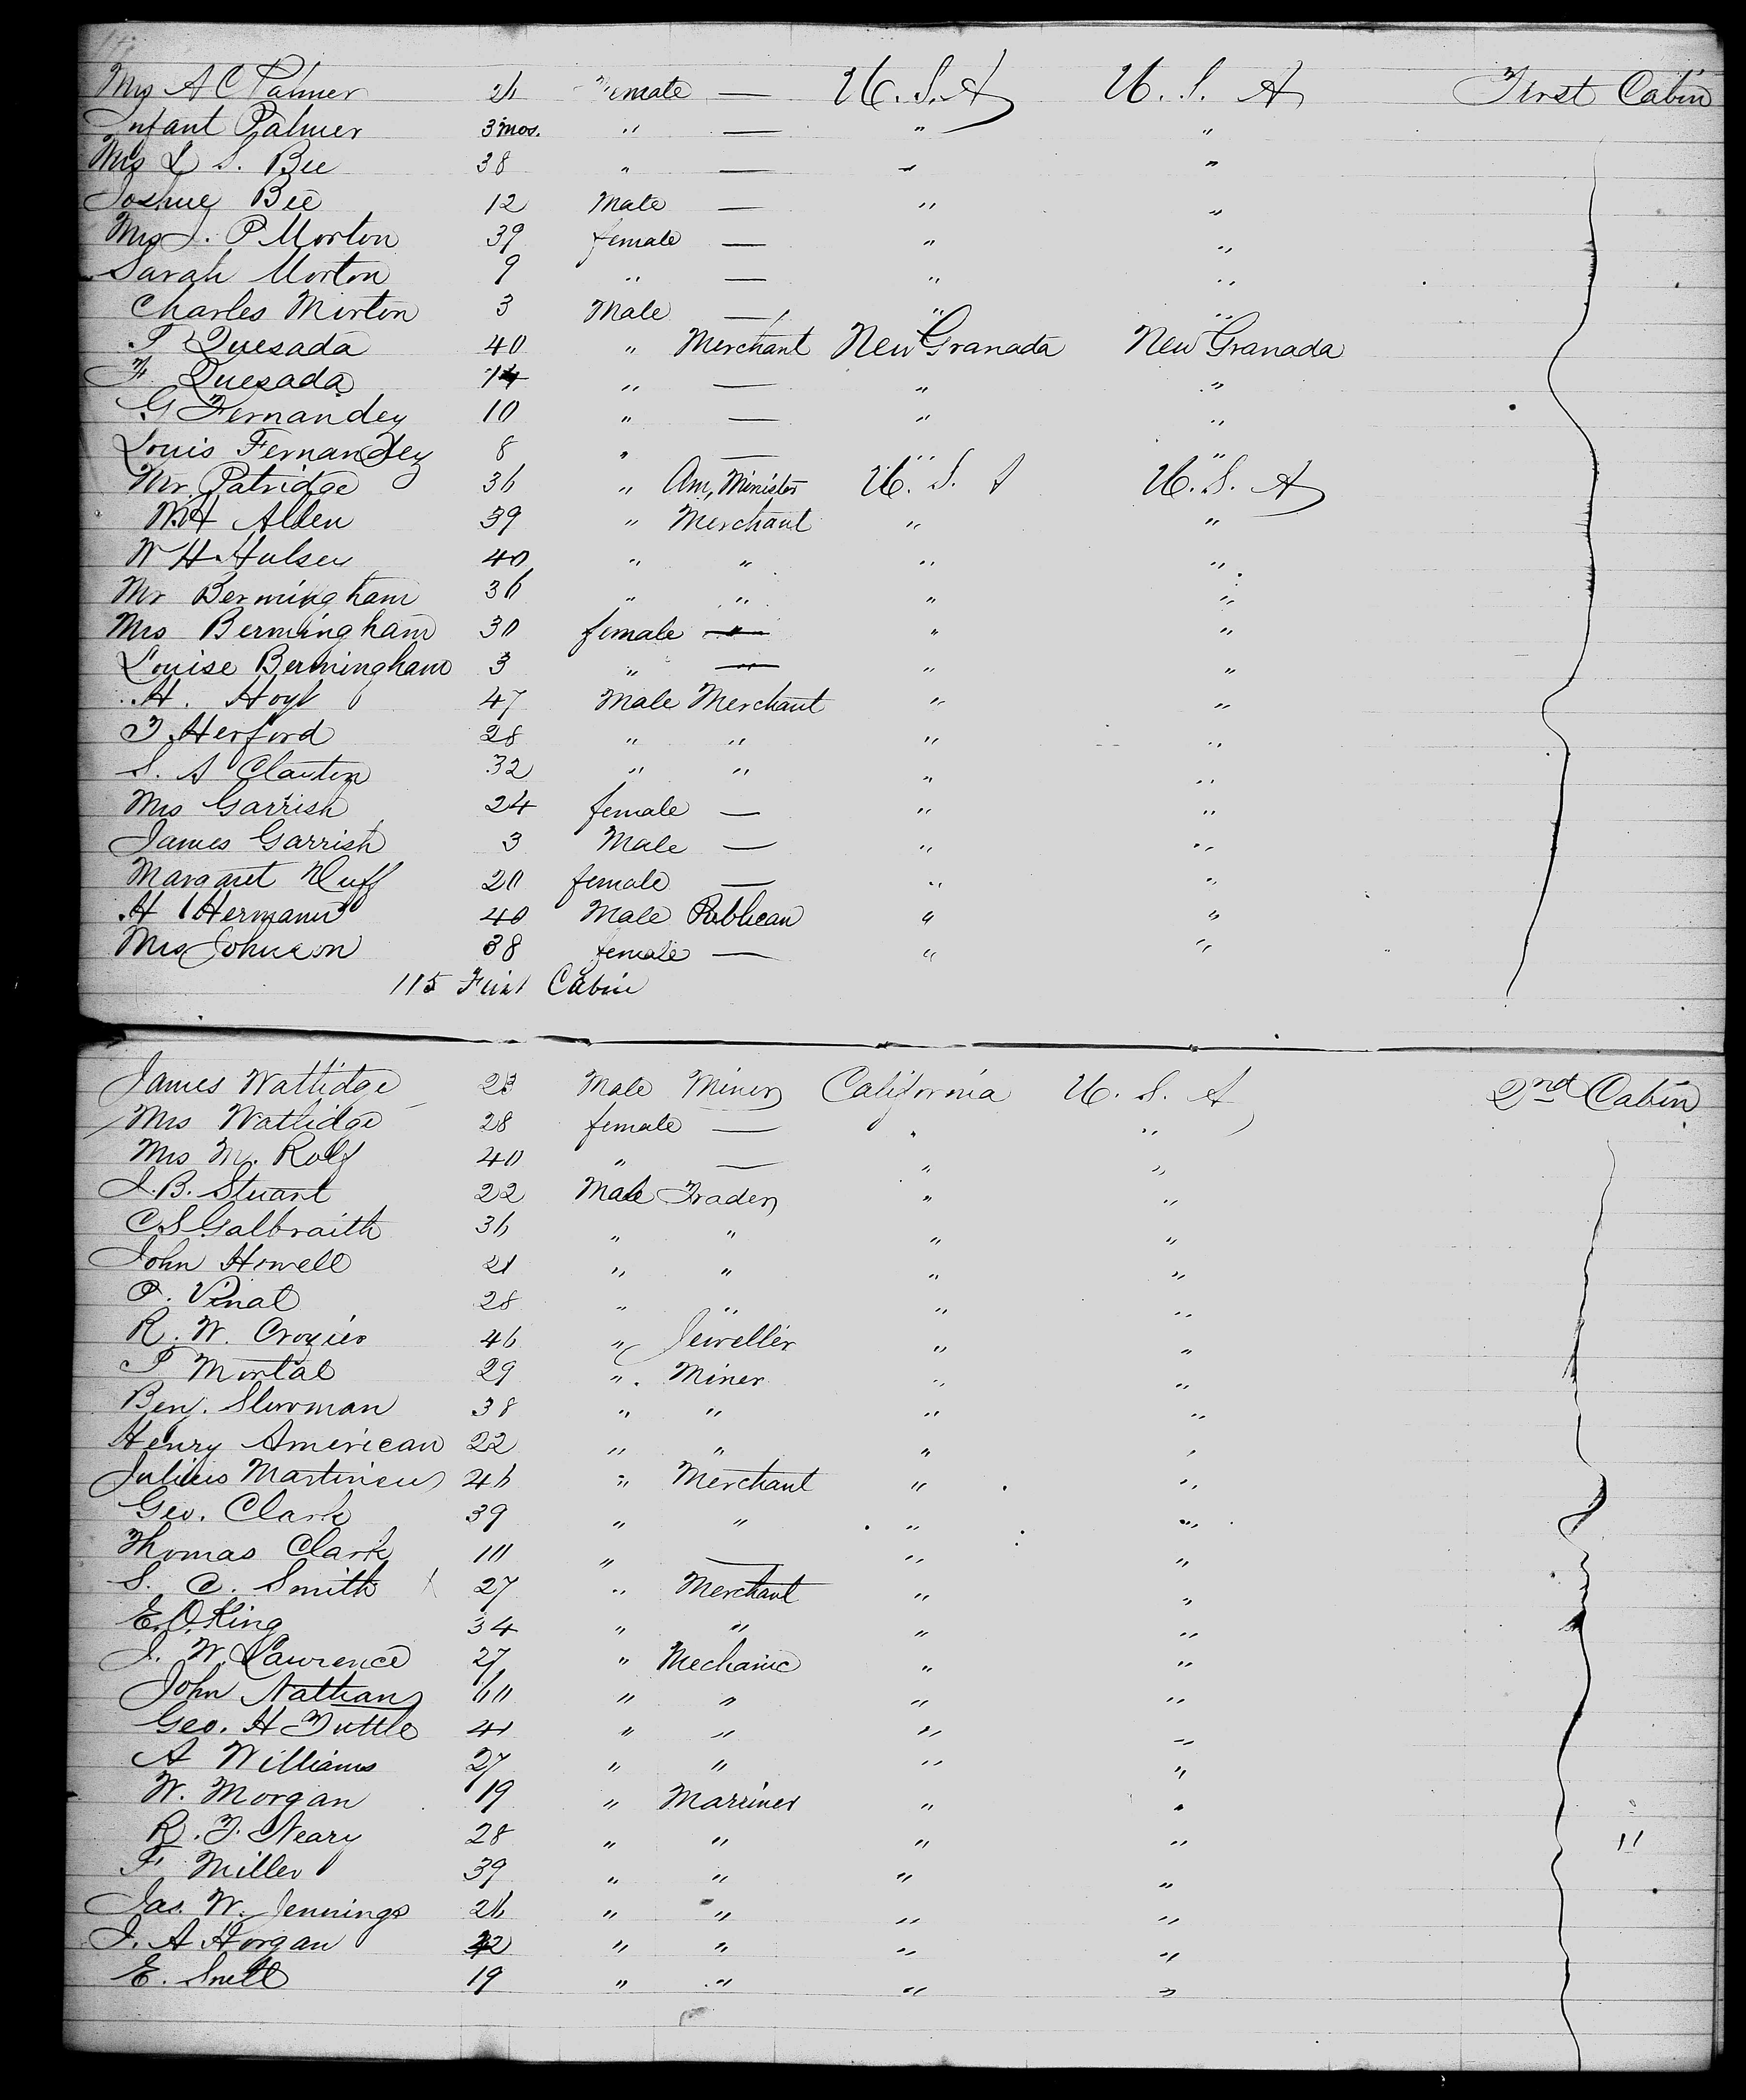 Mrs A C Palmer 26 Female — U. S. A U. S. A First Cabin
Infant Palmer 3 mos. " — " "
Mrs L S. Bee 38 " — " "
Joshue Bee 12 Male — " "
Mrs J. P Morton 39 female — " "
Sarah Morton 9 " — " "
Charles Morton 3 Male — " "
P Quesada 40 " Merchant New Granada New Granada
F Quesada 14 " — " "
G Fernandez 10 " — " "
Louis Fernandez 8 " — " "
Mr. Patridge 36 " Am, Minister U. S. A U. S. A
W.H Allen 39 " Merchant " "
W H Hulsey 40 " " " "
Mr Bermingham 36 " " " "
Mrs Bermingham 30 female — " "
Louise Bermingham 3 " — " "
H. Hoyt 47 Male Merchant " "
T Herford 28 " " " "
S. A Claxton 32 " " " "
Mrs Garrish 24 female — " "
James Garrish 3 Male — " "
Margaret Duff 20 female — " "
H Hermann 40 Male Publican " "
Mrs Johnson 38 female — " "
115 First Cabin
James Wattidge 23 Male Miner California U. S. A 2nd Cabin
Mrs Wattidge 28 female — " "
Mrs M. Rolf 40 " — " "
J. B. Stuart 22 Male Trader " "
C. S Galbraith 36 " " " "
John Howell 21 " " " "
P. Vinal 28 " " " "
R. W. Crozier 46 " Jeweller " "
P Mortal 29 " Miner " "
Benj. Slowman 38 " " " "
Henry American 22 " " " "
Julius Martineu 46 " Merchant " "
Geo. Clark 39 " " " "
Thomas Clark 10 " — " "
S. C. Smith 27 " Merchant " "
E. O. King 34 " " " "
J. W. Lawrence 27 " Mechanic " "
John Nathans 60 " " " "
Geo. H Tuttle 41 " " " "
A Williams 27 " " " "
W. Morgan 19 " Marriner " "
R. F. Neary 28 " " " " "
F Miller 39 " " " "
Jas. W. Jennings 26 " " " "
J. A Horgan 42 " " " "
E. Snell 19 " " " "